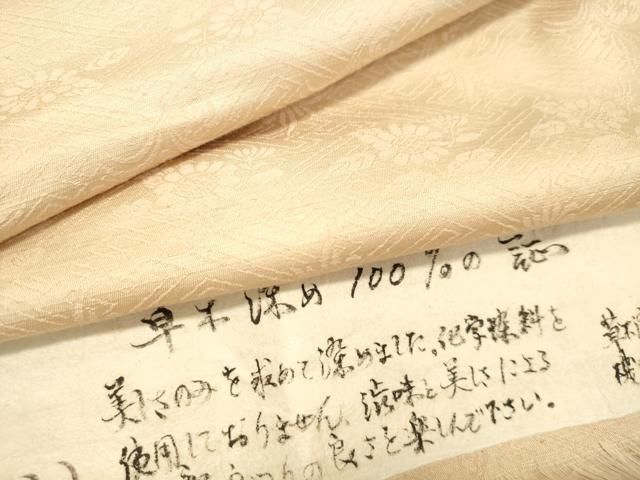 草木染め100%の証
美しさのみを求めて染めました。化学染料を
使用しておりません。滋味と美しさによる
の良さを楽しんで下さい。
草木
機